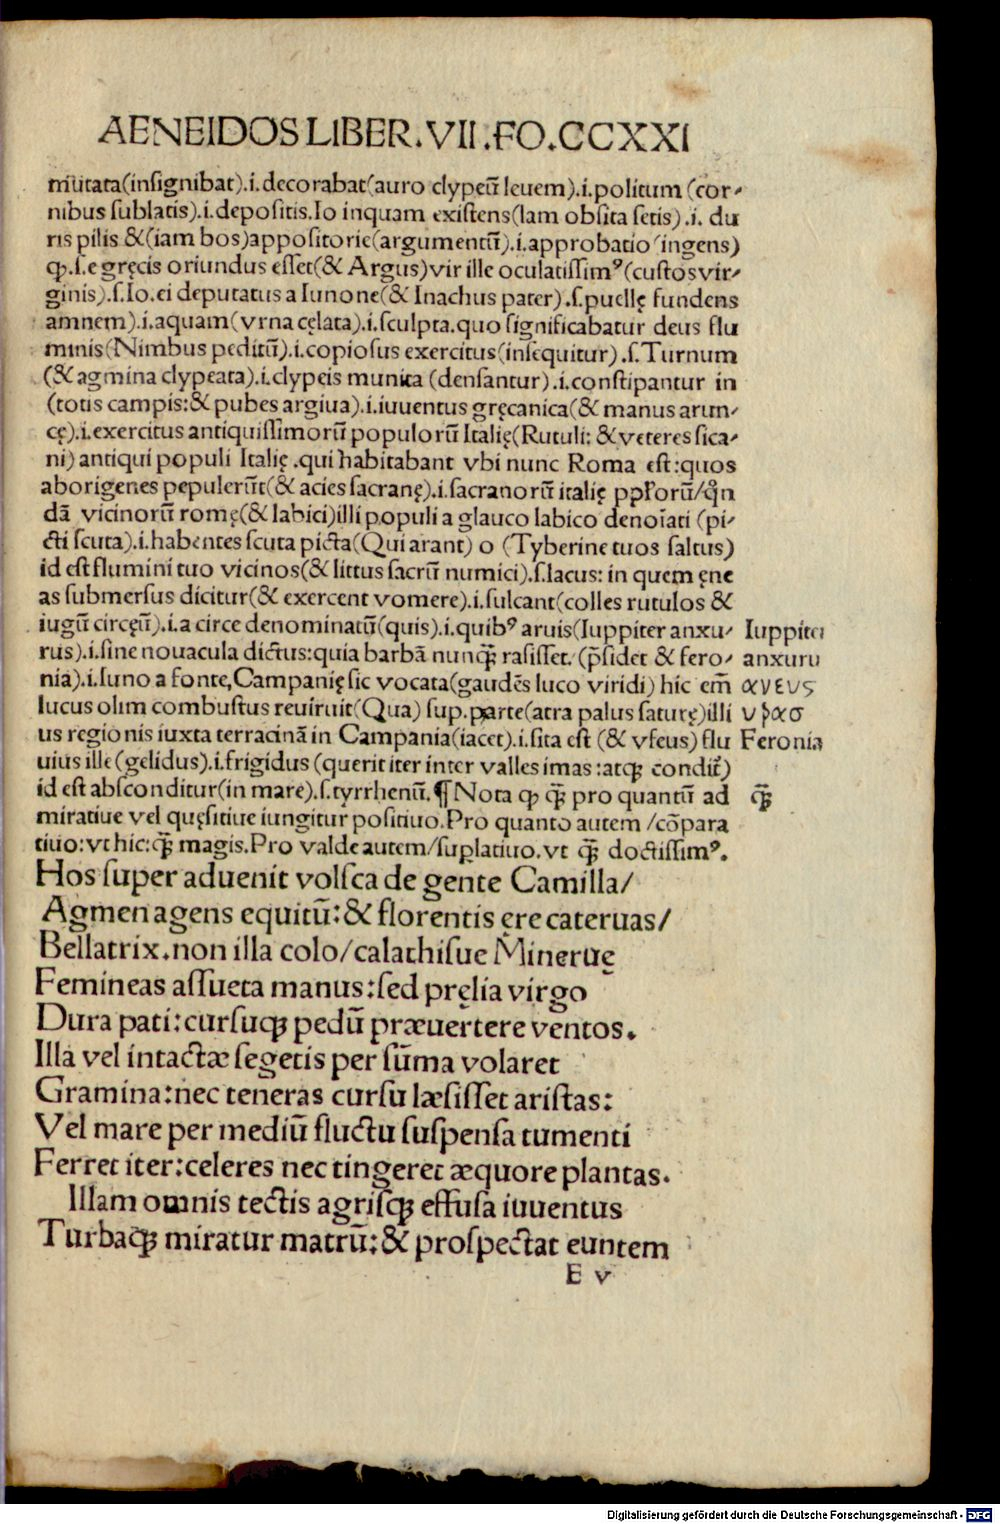 AENEIDOS LIBER.VII.FO.CCXXI
mūtata(insignibat).i.decorabat(auro clypeū leuem).i.politum (cor-
nibus sublatis).i.depositis.Io inquam existens(Iam obsita setis).i. du
ris pilis &(iam bos)appositorie(argumentū).i.approbatio(ingens)
ꝙ.s.e gręcis oriundus esset(& Argus)vir ille oculatissimꝰ(custos vir-
ginis).s.Io.ei deputatus a Iunone(& Inachus pater).s.puellę fundens
amnem).i.aquam(vrna cęlata).i.sculpta.quo significabatur deus flu
minis(Nimbus peditū).i.copiosus exercitus(insequitur).s.Turnum
(& agmina clypeata).i.clypeis munita (densantur).i.constipantur in
(totis campis:& pubes argiua).i.iuuentus gręcanica(& manus arun-
cę).i.exercitus antiquissimorū populorū Italię(Rutuli: & veteres sica-
ni) antiqui populi Italię .qui habitabant vbi nunc Roma est:quos
aborigenes pepulerūt(& acies sacranę).i.sacranorū italię pplorū/qn
dā vicinorū romę(& labici)illi populi a glauco labico denoīati (pi-
cti scuta).i.habentes scuta picta(Qui arant) o (Tyberine tuos saltus)
id est flumini tuo vicinos(& littus sacrū numici).s.lacus: in quem ęne
as submersus dicitur(& exercent vomere).i.sulcant(colles rutulos &
iugū circęū).i.a circe denominatū(quis).i.quibꝰ aruis(Iuppiter anxu- Iuppiter
rus).i.sine nouacula dictus:quia barbā nunꝗ̄ rasisset. (p̄sidet & fero- anxuru
nia).i.Iuno a fonte,Campanię sic vocata(gaudēs luco viridi) hic em̄ ανευς
lucus olim combustus reuiruit(Qua) sup.parte(atra palus saturę)illi
us regionis iuxta terracinā in Campania(iacet).i.sita est (& vfeus) flu Feronia
uius ille(gelidus).i.frigidus (querit iter inter valles imas :atꝗ condit̄)
id est absconditur(in mare).s.tyrrhenū.¶Nota ꝙ ꝗ̄ pro quantū ad ꝗ̄
miratiue vel quęsitiue iungitur positiuo.Pro quanto autem /cōpara
tiuo:vt hic:ꝗ̄ magis.Pro valde autem/suplatiuo.vt ꝗ̄ doctissimꝰ.
Hos super aduenit volsca de gente Camilla/
Agmen agens equitū:& florentis ęre cateruas/
Bellatrix.non illa colo/calathisue Mineruę
Femineas assueta manus:sed pręlia virgo
Dura pati:cursuꝗ pedū præuertere ventos.
Illa vel intactæ segetis per sūma volaret
Gramina:nec teneras cursu læsisset aristas:
Vel mare per mediū fluctu suspensa tumenti
Ferret iter:celeres nec tingeret æquore plantas.
Illam omnis tectis agrisꝗ effusa iuuentus
Turbaꝗ miratur matrū:& prospectat euntem
E v
Digitalisierung gefördert durch die Deutsche Forschungsgemeinschaft - DFG